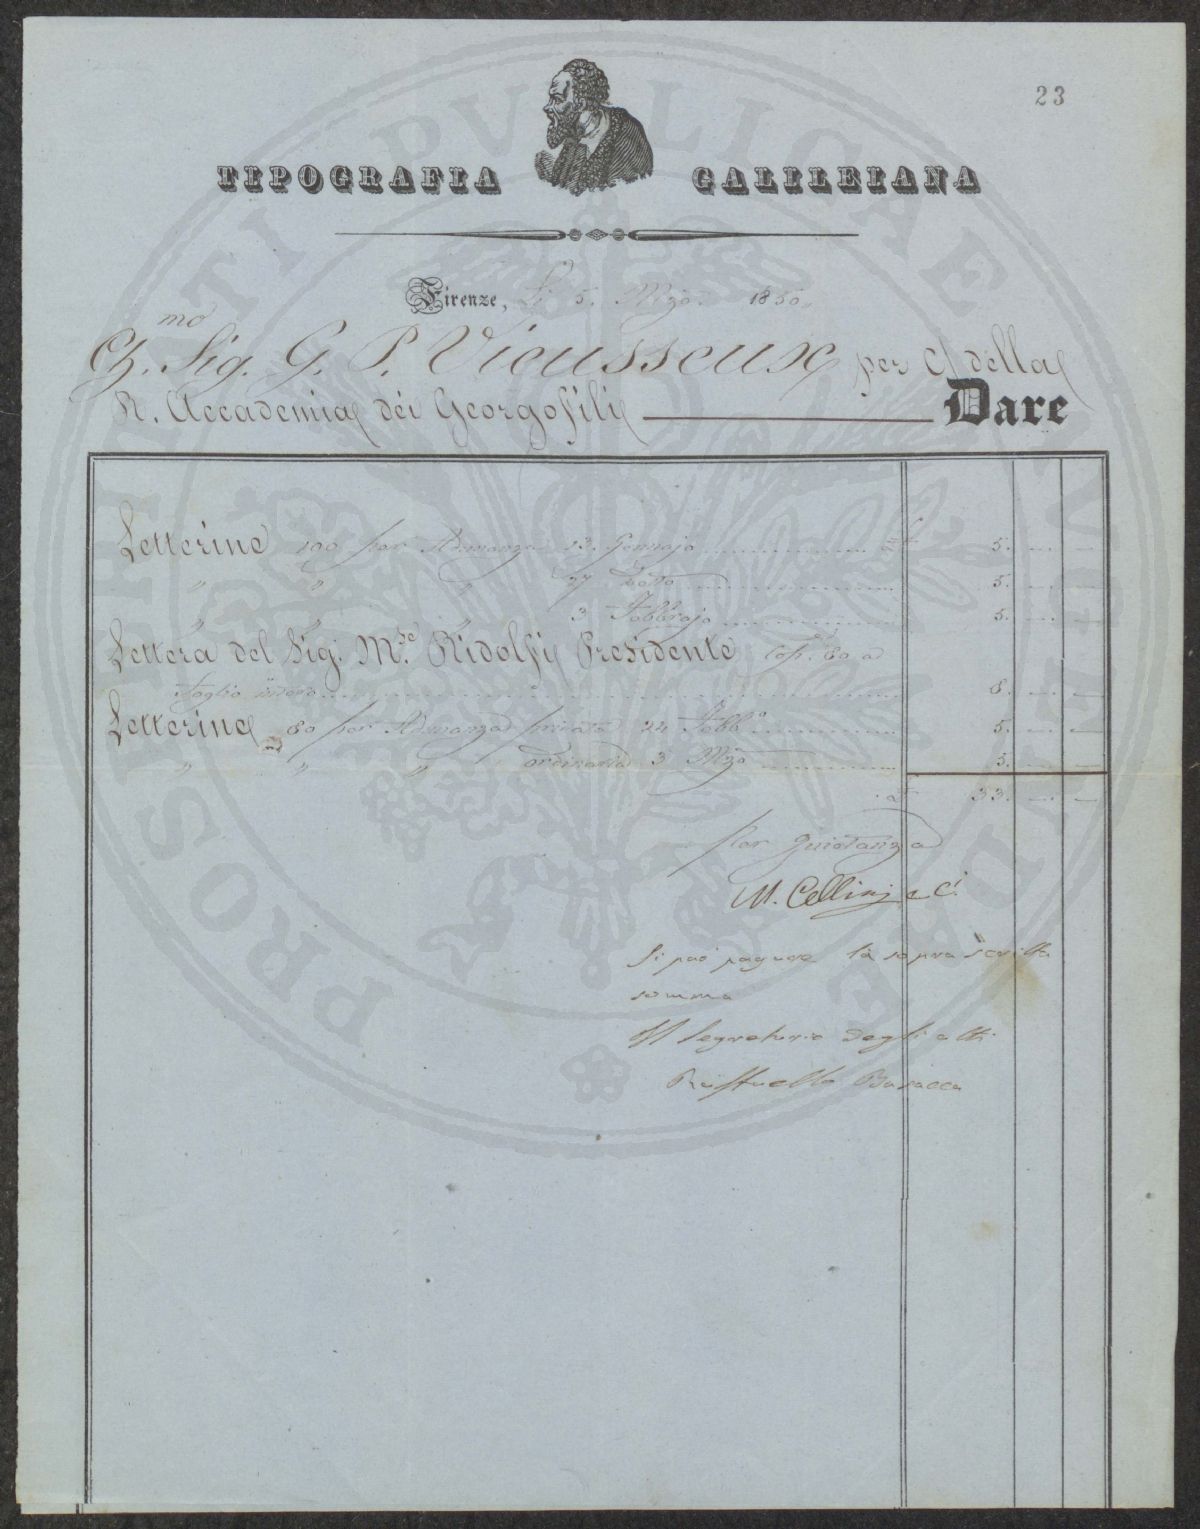 23
TIPOGRAFIA GALILEIANA
Firenze, Li 5. Mzo. 1850.
Ch.mo Sig. G. P. Vieusseux per C/ della
R. Accademia dei Georgofili Dare
Letterine 100 per Adunanza 13. Gennajo 5. — —
" " " 27 Detto 5. — —
" " " 3 Febbrajo 5. — —
Lettera del Sig. M.se Ridolfi Presidente Cop. 80 ad
foglio intero 8. — —
Letterine 80 per Adunanza privata 24 Febb.o 5. — —
" " " ordinaria 3 Mzo 5. — —
33. — —
Per Quietanza
M. Cellini e C.
Si può pagare la sopra scritta
somma
Il Segretario degli atti
Raffaello Busacca
PROSPERITATI PVBLICAE AVGENDAE